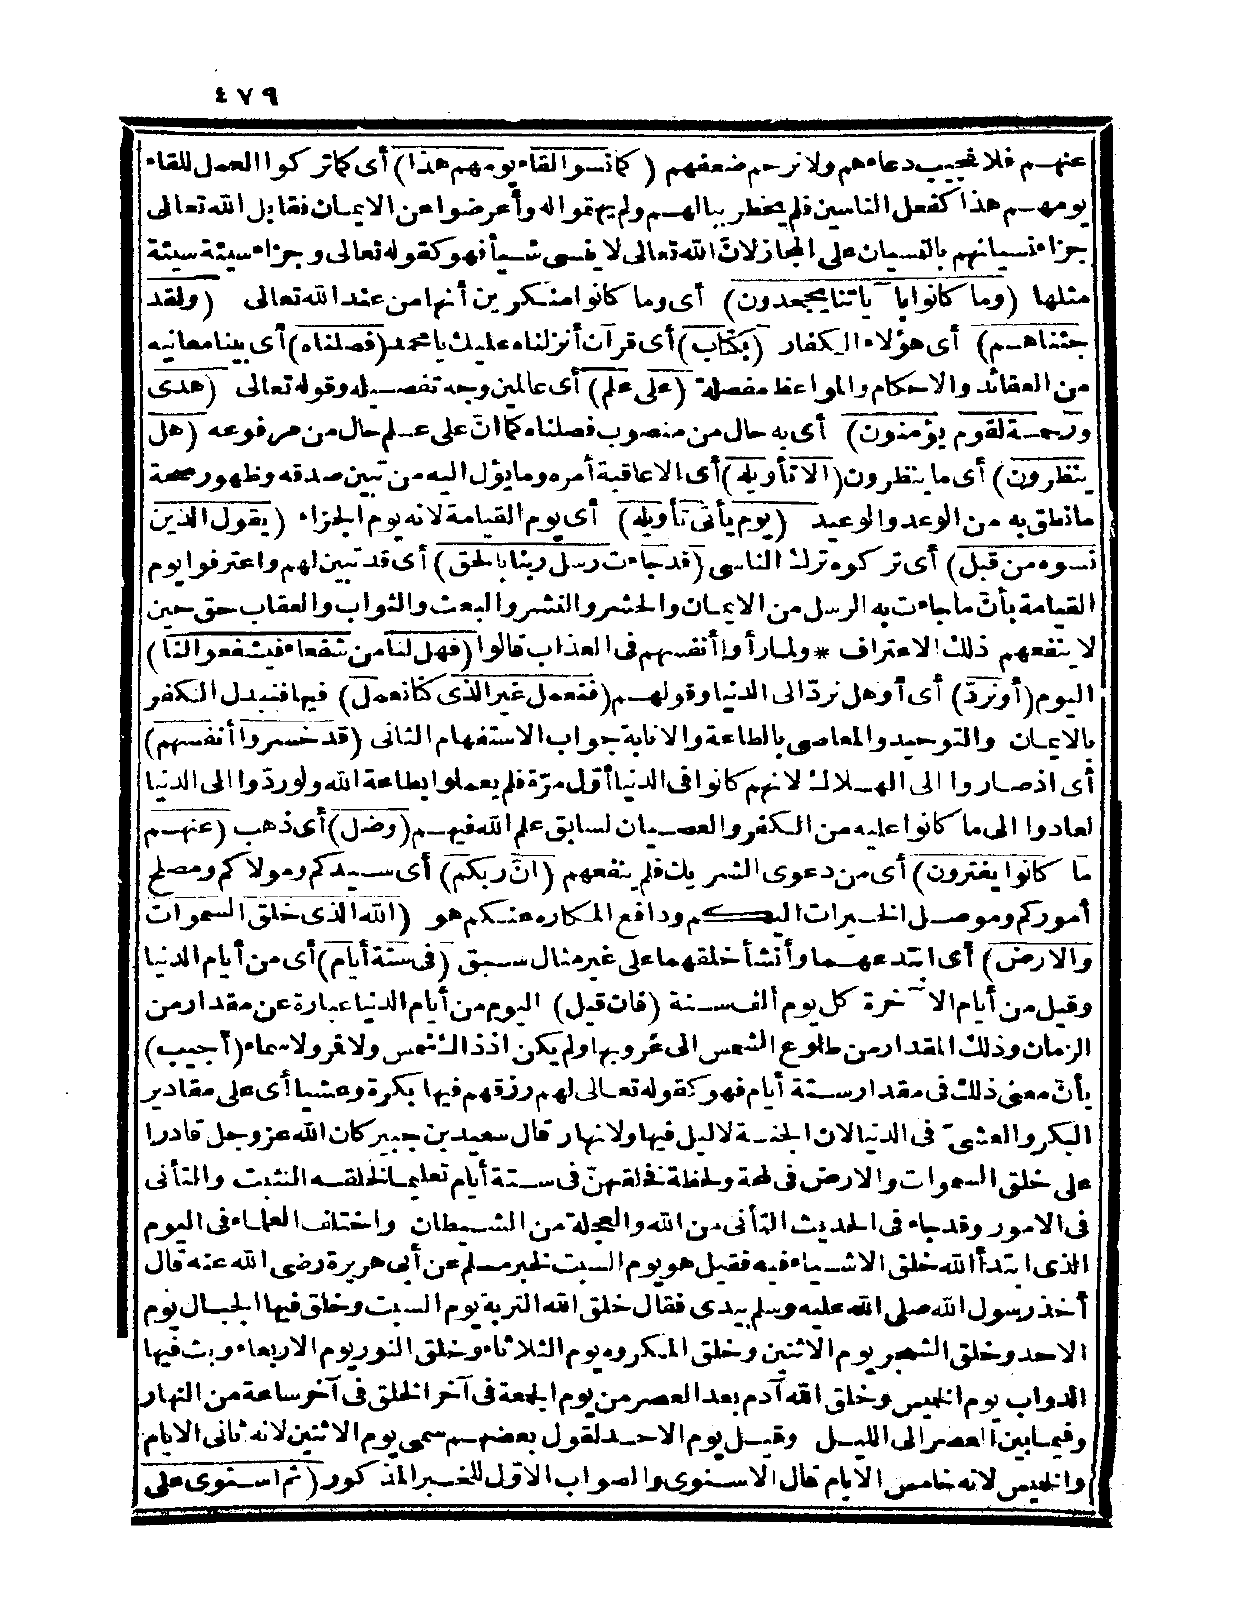 ٤٧٩
عنهم فلا نجيب دعاءهم ولا نرحم ضعفهم (كما نسوا لقاء يومهم هذا) أى كما تركوا العمل للقاء
يومهم هذا كفعل الناسين فلم يخطر ببالهم ولم يهتموا له وأعرضوا عن الايمان فقابل الله تعالى
جزاء نسيانهم بالنسيان على المجاز لانّ الله تعالى لا ينسى شيأ فهو كقوله تعالى وجزاء سيئة سيئة
مثلها (وما كانوا بآياتنا يجحدون) أى وما كانوا منكرين أنها من عند الله تعالى (ولقد
جئناهم) أى هؤلاء الكفار (بكتاب) أى قرآن أنزلناه عليك يا محمد (فصلناه) أى بينا معانيه
من العقائد والاحكام والمواعظ مفصلة (على علم) أى عالمين وجه تفصيله وقوله تعالى (هدى
ورحمة لقوم يؤمنون) أى به حال من منصوب فصلناه كما انّ على علم حال من مرفوعه (هل
ينظرون) أى ما ينظرون (الا تأويله) أى الاعاقبة أمره وما يؤل اليه من تبين صدقه وظهور صحة
ما نطق به من الوعد والوعيد (يوم يأتى تأويله) أى يوم القيامة لانه يوم الجزاء (يقول الذين
نسوه من قبل) أى تركوه ترك الناسى (قد جاءت رسل ربنا بالحق) أى قد تبين لهم واعترفوا يوم
القيامة بأنّ ما جاءت به الرسل من الايمان والحشر والنشر والبعث والثواب والعقاب حق حين
لا ينفعهم ذلك الاعتراف * ولما رأوا أنفسهم فى العذاب قالوا (فهل لنا من شفعاء فيشفعوا لنا)
اليوم (أو نردّ) أى أو هل نردّ الى الدنيا وقولهم (فنعمل غير الذى كنا نعمل) فيها فنبدل الكفر
بالايمان والتوحيد والمعاصى بالطاعة والانابة جواب الاستفهام الثانى (قد خسروا أنفسهم)
أى اذ صاروا الى الهلاك لانهم كانوا فى الدنيا أوّل مرّة فلم يعملوا بطاعة الله ولو ردّوا الى الدنيا
لعادوا الى ما كانوا عليه من الكفر والعصيان لسابق علم الله فيهم (وضل) أى ذهب (عنهم
ما كانوا يفترون) أى من دعوى الشريك فلم ينفعهم (انّ ربكم) أى سيدكم ومولاكم ومصلح
أموركم وموصل الخيرات اليكم ودافع المكاره عنكم هو (الله الذى خلق السموات
والارض) أى ابتدعهما وأنشأ خلقهما على غير مثال سبق (فى ستة أيام) أى من أيام الدنيا
وقيل من أيام الآخرة كل يوم ألف سنة (فان قيل) اليوم من أيام الدنيا عبارة عن مقدار من
الزمان وذلك المقدار من طلوع الشمس الى غروبها ولم يكن اذ ذاك شمس ولا قمر ولا سماء (أجيب)
بأنّ معنى ذلك فى مقدار ستة أيام فهو كقوله تعالى لهم رزقهم فيها بكرة وعشيا أى على مقادير
البكر والعشىّ فى الدنيا لان الجنة لا ليل فيها ولا نهار قال سعيد بن جبير كان الله عز وجل قادرا
على خلق السموات والارض فى لمحة ولحظة فخلقهنّ فى ستة أيام تعليما لخلقه التثبت والتأنى
فى الامور وقد جاء فى الحديث التأنى من الله والعجلة من الشيطان واختلف العلماء فى اليوم
الذى ابتدأ الله خلق الاشياء فيه فقيل هو يوم السبت لخبر مسلم عن أبى هريرة رضى الله عنه قال
أخذ رسول الله صلى الله عليه وسلم بيدى فقال خلق الله التربة يوم السبت وخلق فيها الجبال يوم
الاحد وخلق الشجر يوم الاثنين وخلق المكروه يوم الثلاثاء وخلق النور يوم الاربعاء وبث فيها
الدواب يوم الخميس وخلق الله آدم بعد العصر من يوم الجمعة فى آخر الخلق فى آخر ساعة من النهار
وفيما بين العصر الى الليل وقيل يوم الاحد لقول بعضهم سمى يوم الاثنين لانه ثانى الايام
والخميس لانه خامس الايام قال الاسنوى والصواب الاوّل للخبر المذكور (ثم استوى على